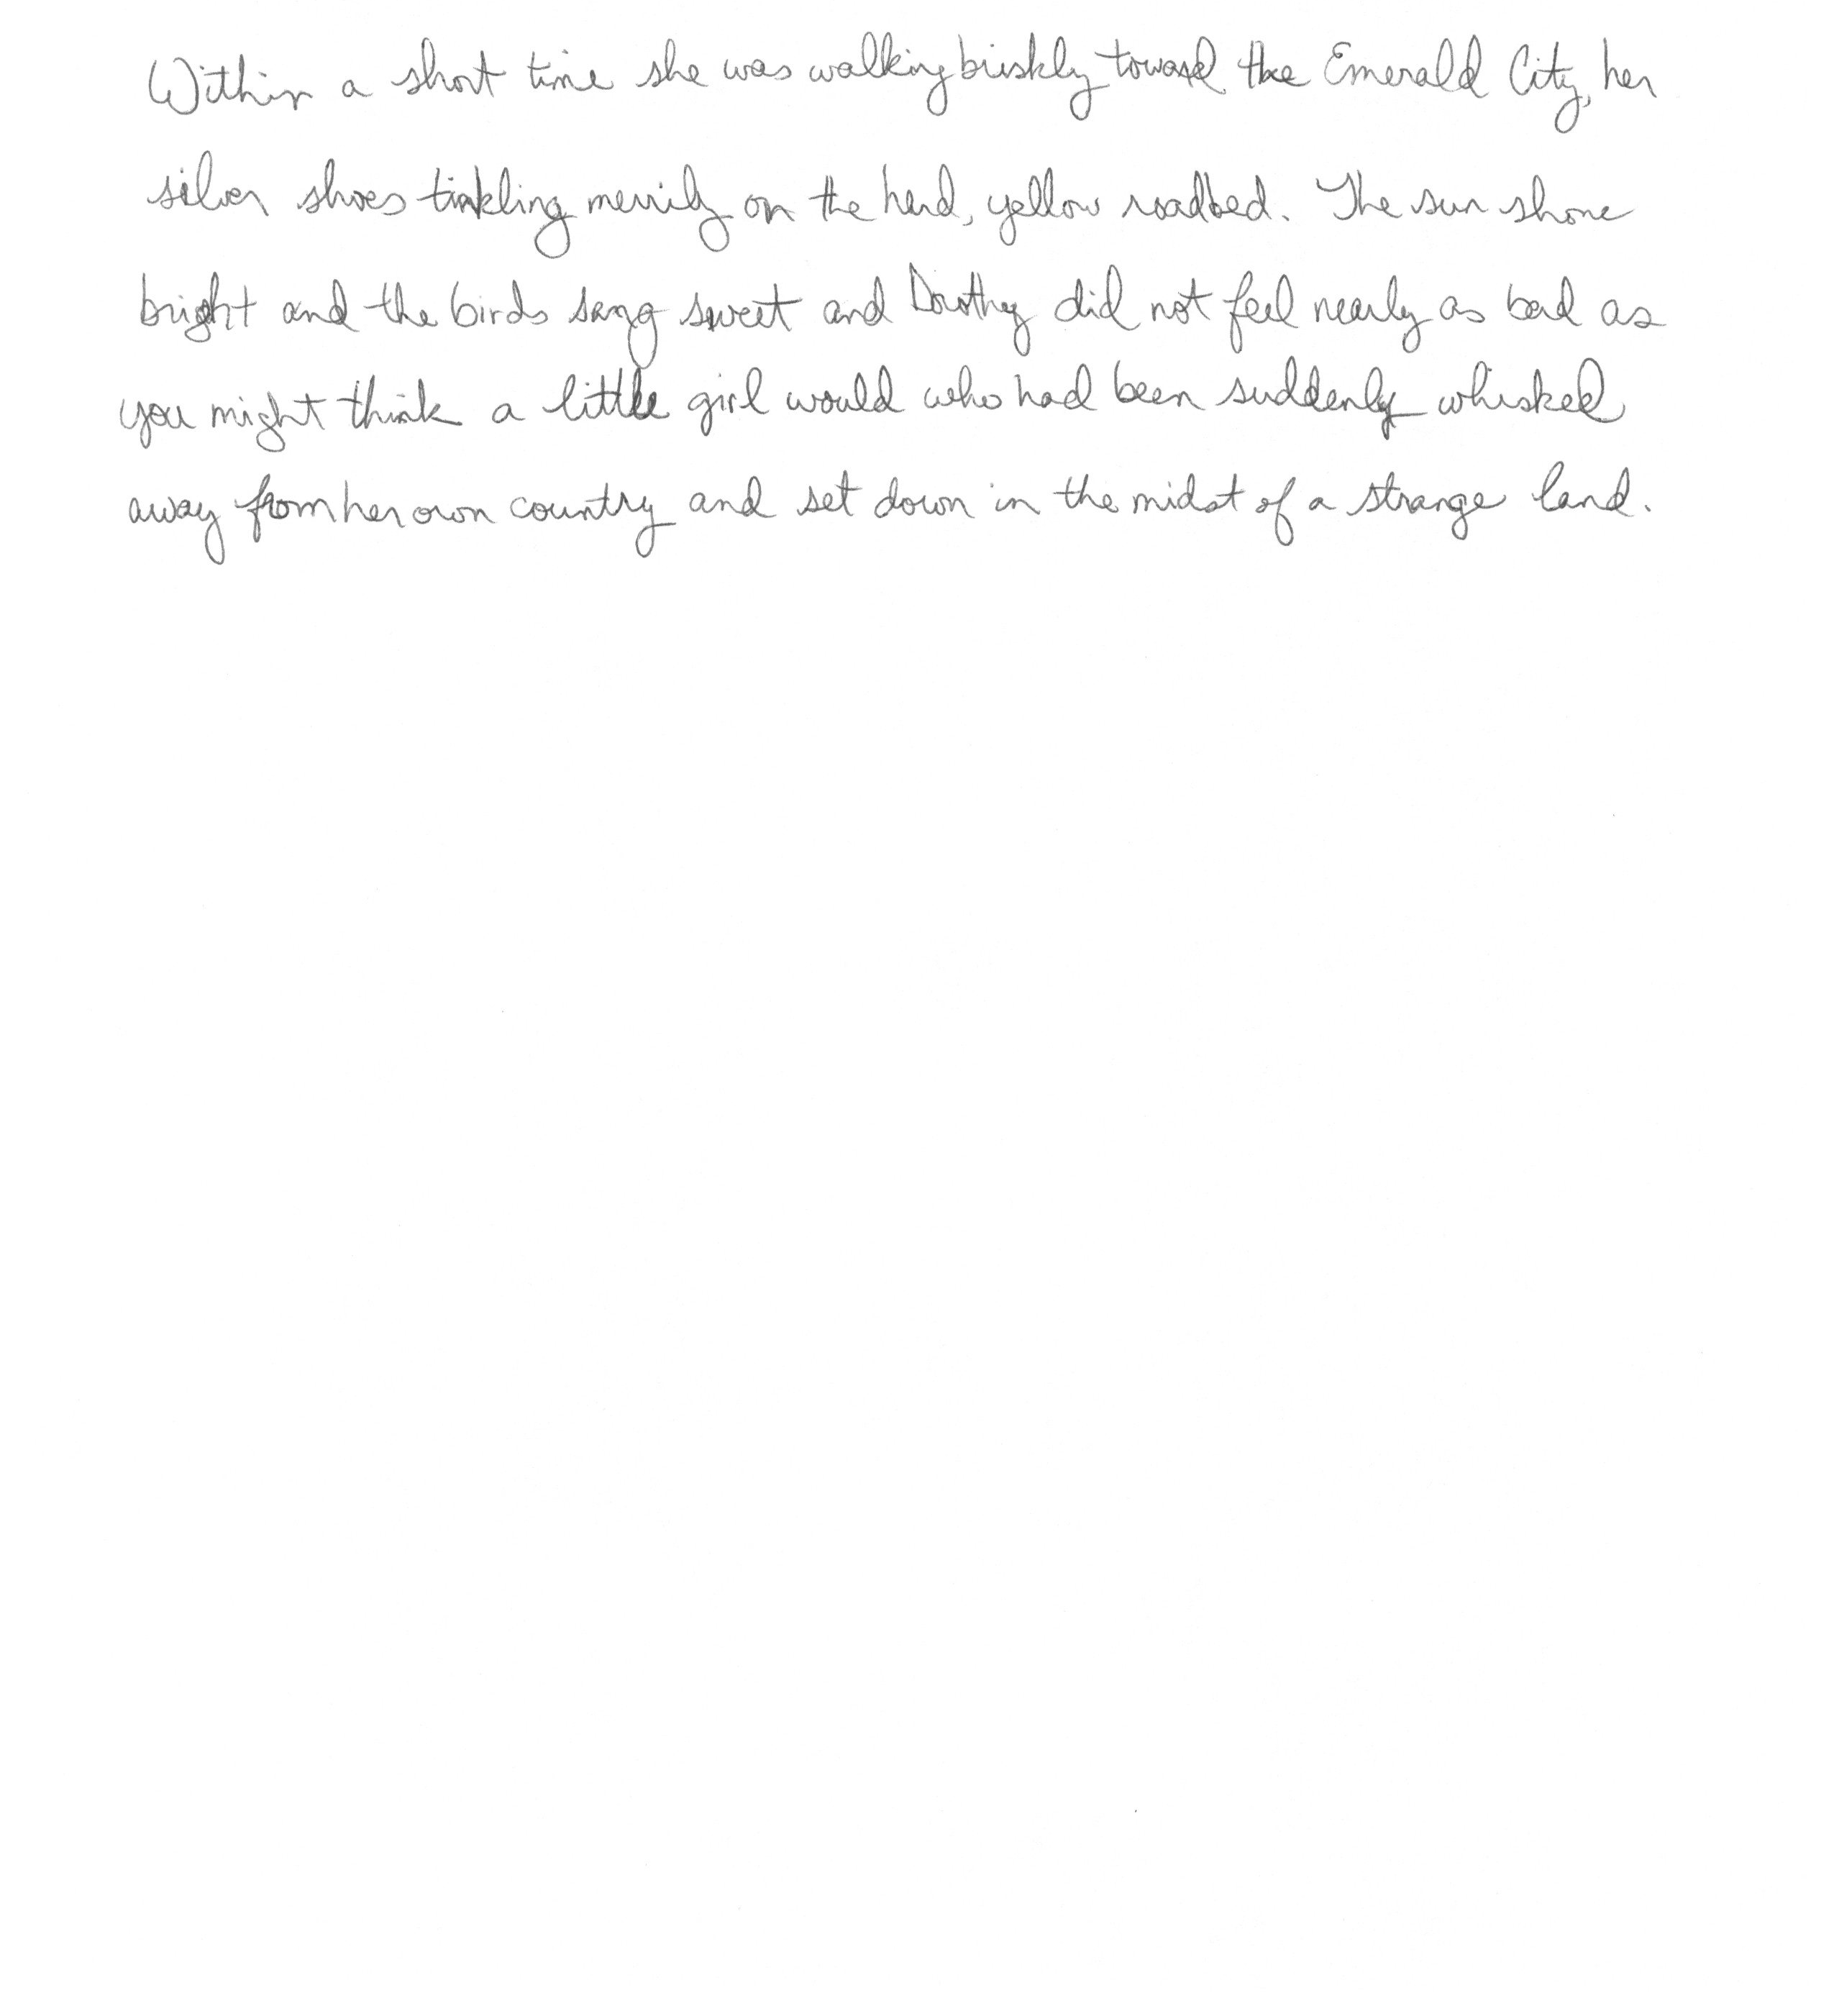 Within a short time she was walking briskly toward the Emerald City, her
silver shoes tinkling merrily on the hard, yellow roadbed. The sun shone
bright and the birds sang sweet and Dorothy did not feel nearly as bad as
you might think a little girl would who had been suddenly whisked
away from her own country and set down in the midst of a strange land.